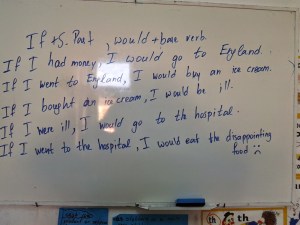 If +S. Past , would + base verb
If I had money, I would go to England.
If I went to England, I would buy an ice cream.
If I bought an ice cream, I would be ill.
If I were ill, I would go to the hospital.
If I went to the hospital, I would eat the disappointing
food
th